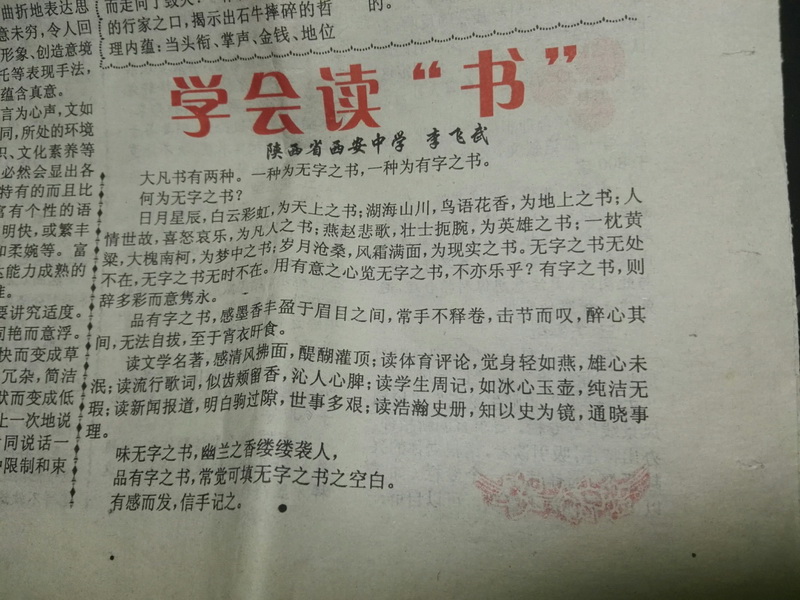 曲折地表达思
意未穷，令人回
形象、创造意境
托等表现手法，
蕴含真意。
言为心声，文如
同，所处的环境
识、文化素养等
必然会显出各
特有的而且比
富有个性的语
明快，或繁丰
和柔婉等。富
达能力成熟的
要讲究适度。
词艳而意浮。
快而变成草
冗杂，简洁
状而变成低
上一次地说
同说话一
限制和束
的行家之口，揭示出石牛摔碎的哲
理内蕴：当头衔、掌声、金钱、地位
的。
学会读“书”
陕西省西安中学 李飞武
大凡书有两种。一种为无字之书，一种为有字之书。
何为无字之书？
日月星辰，白云彩虹，为天上之书；湖海山川，鸟语花香，为地上之书；人
情世故，喜怒哀乐，为凡人之书；燕赵悲歌，壮士扼腕，为英雄之书；一枕黄
粱，大槐南柯，为梦中之书；岁月沧桑，风霜满面，为现实之书。无字之书无处
不在，无字之书无时不在。用有意之心览无字之书，不亦乐乎？有字之书，则
辞多彩而意隽永。
品有字之书，感墨香丰盈于眉目之间，常手不释卷，击节而叹，醉心其
间，无法自拔，至于宵衣旰食。
读文学名著，感清风拂面，醍醐灌顶；读体育评论，觉身轻如燕，雄心未
泯；读流行歌词，似齿颊留香，沁人心脾；读学生周记，如冰心玉壶，纯洁无
瑕；读新闻报道，明白驹过隙，世事多艰；读浩瀚史册，知以史为镜，通晓事
理。
味无字之书，幽兰之香缕缕袭人，
品有字之书，常觉可填无字之书之空白。
有感而发，信手记之。